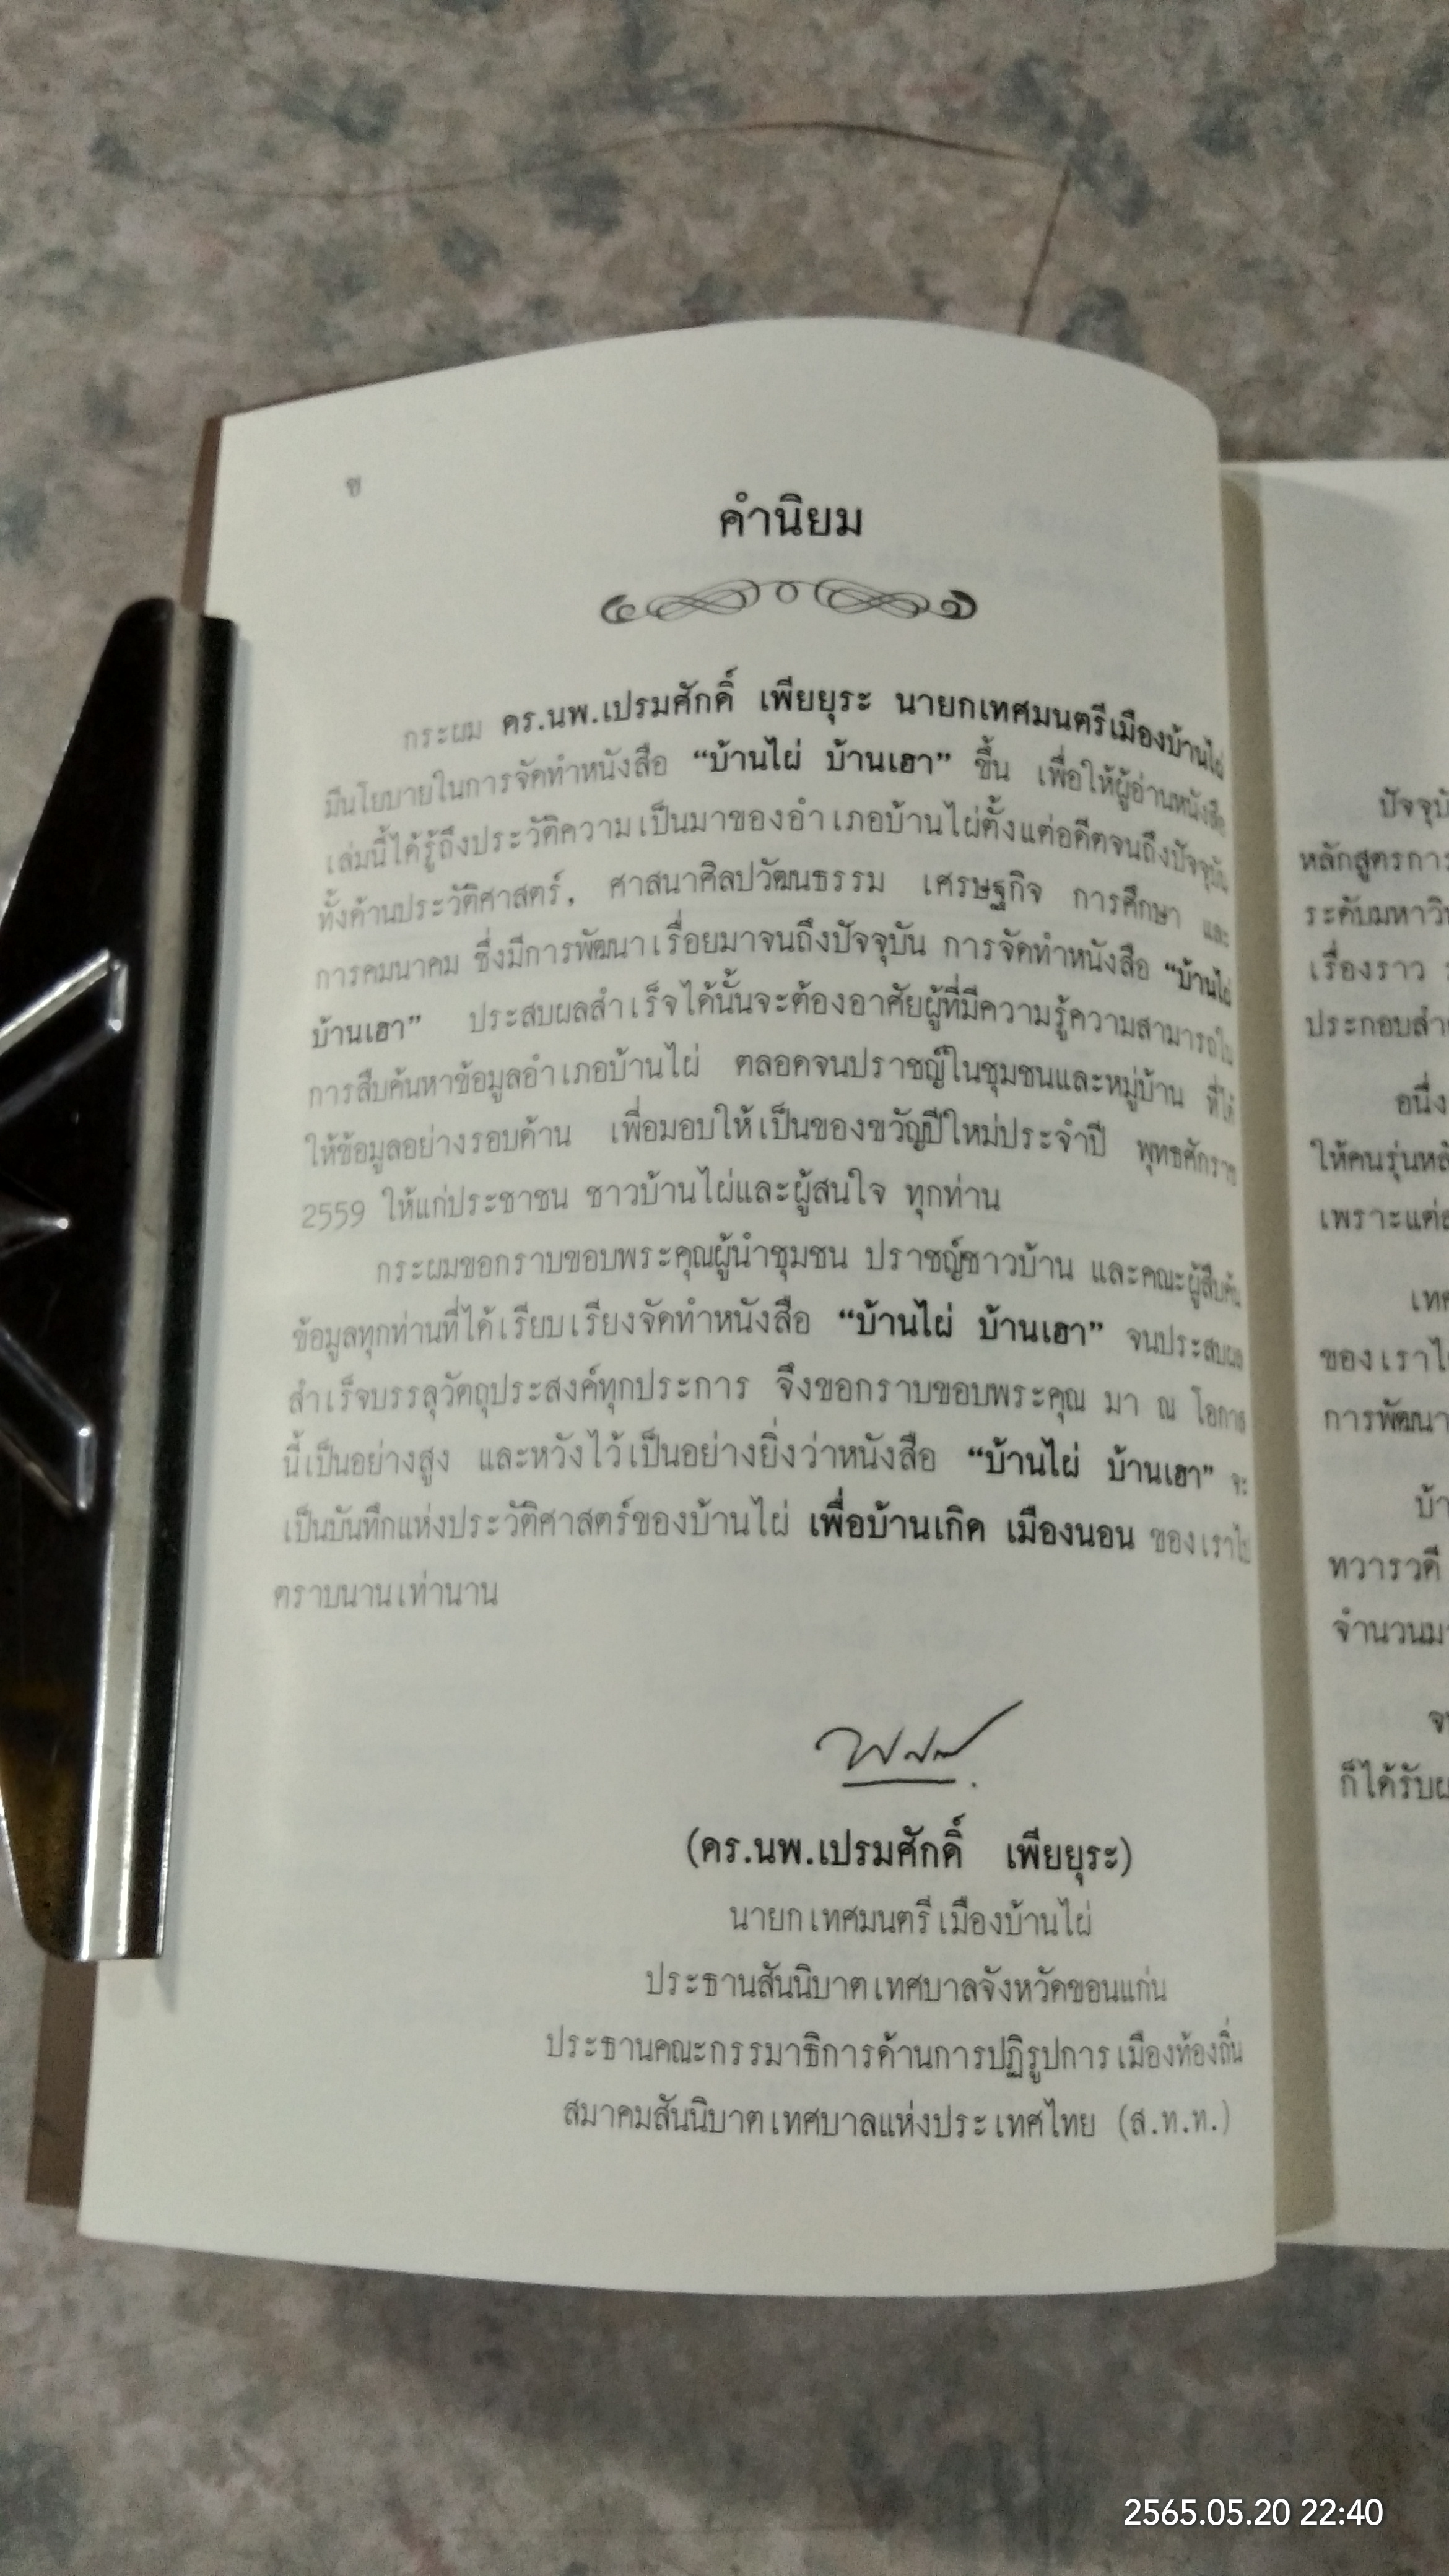 คำนิยม
กระผม ดร.นพ.เปรมศักดิ์ เพียยุระ นายกเทศมนตรีเมืองบ้านไผ่
มีนโยบายในการจัดทำหนังสือ “บ้านไผ่ บ้านเฮา” ขึ้น เพื่อให้ผู้อ่านหนังสือ
เล่มนี้ได้รู้ถึงประวัติความเป็นมาของอำเภอบ้านไผ่ตั้งแต่อดีตจนถึงปัจจุบัน
ทั้งด้านประวัติศาสตร์, ศาสนาศิลปวัฒนธรรม เศรษฐกิจ การศึกษา และ
การคมนาคม ซึ่งมีการพัฒนาเรื่อยมาจนถึงปัจจุบัน การจัดทำหนังสือ “บ้านไผ่
บ้านเฮา” ประสบผลสำเร็จได้นั้นจะต้องอาศัยผู้ที่มีความรู้ความสามารถใน
การสืบค้นหาข้อมูลอำเภอบ้านไผ่ ตลอดจนปราชญ์ในชุมชนและหมู่บ้าน ที่ได้
ให้ข้อมูลอย่างรอบด้าน เพื่อมอบให้เป็นของขวัญปีใหม่ประจำปี พุทธศักราช
2559 ให้แก่ประชาชน ชาวบ้านไผ่และผู้สนใจ ทุกท่าน
กระผมขอกราบขอบพระคุณผู้นำชุมชน ปราชญ์ชาวบ้าน และคณะผู้สืบค้น
ข้อมูลทุกท่านที่ได้เรียบเรียงจัดทำหนังสือ “บ้านไผ่ บ้านเฮา” จนประสบผล
สำเร็จบรรลุวัตถุประสงค์ทุกประการ จึงขอกราบขอบพระคุณ มา ณ โอกาส
นี้เป็นอย่างสูง และหวังไว้เป็นอย่างยิ่งว่าหนังสือ “บ้านไผ่ บ้านเฮา” จะ
เป็นบันทึกแห่งประวัติศาสตร์ของบ้านไผ่ เพื่อบ้านเกิด เมืองนอน ของเราไป
ตราบนานเท่านาน
(ดร.นพ.เปรมศักดิ์ เพียยุระ)
นายกเทศมนตรีเมืองบ้านไผ่
ประธานสันนิบาตเทศบาลจังหวัดขอนแก่น
ประธานคณะกรรมาธิการด้านการปฏิรูปการเมืองท้องถิ่น
สมาคมสันนิบาตเทศบาลแห่งประเทศไทย (ส.ท.ท.)
หลักสูตรการ
เรื่องราว
อนึ่ง
ทวารวดี
2565.05.20 22:40